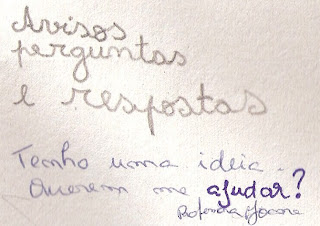 Avisos
perguntas
e respostas
Tenho uma ideia.
Querem me ajudar?